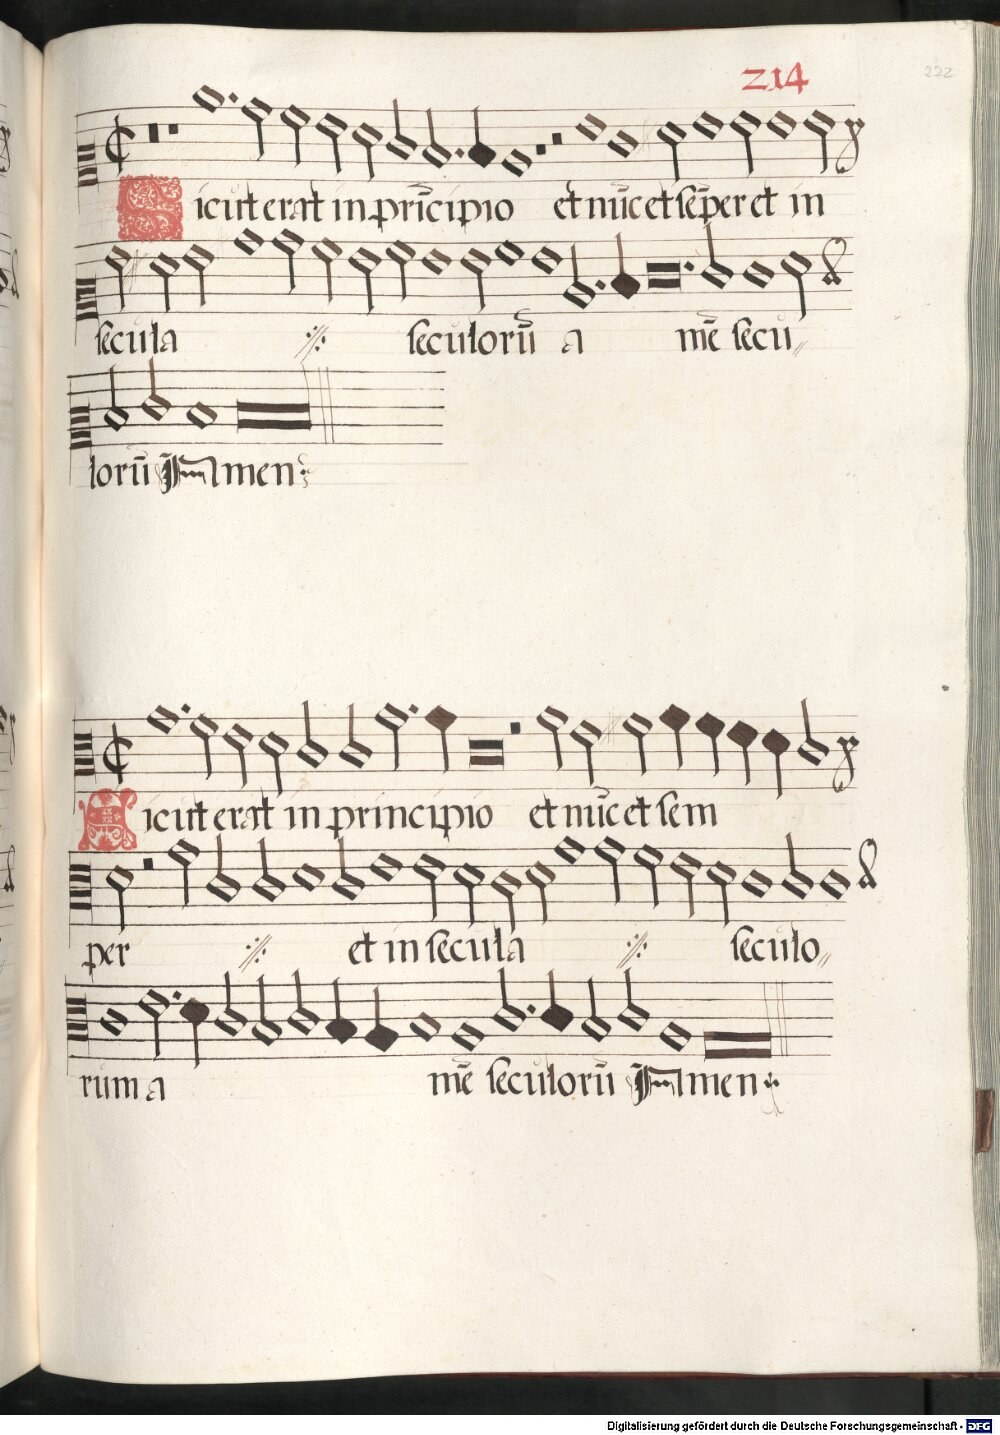 214
222
Sicut erat in prīcipio et nūc et sēper et in
secula :// seculorū a mē secu//
lorū Amen
Sicut erat in principio et nūc et sem
per :// et in secula :// seculo//
rum a mē seculorū Amen
Digitalisierung gefördert durch die Deutsche Forschungsgemeinschaft - DFG